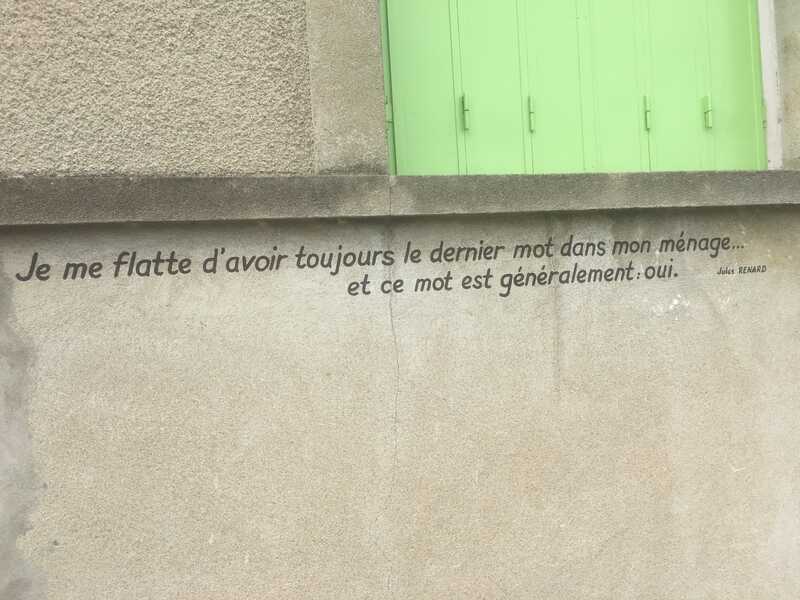 Je me flatte d'avoir toujours le dernier mot dans mon ménage...
et ce mot est généralement : oui.
Jules RENARD